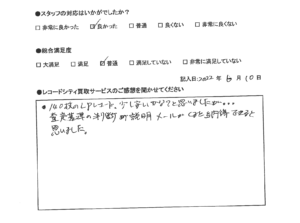 ●スタッフの対応はいかがでしたか？
□ 非常に良かった ☑ 良かった □ 普通 □ 良くない □ 非常に良くない
●総合満足度
□ 大満足 □ 満足 ☑ 普通 □ 満足していない □ 非常に満足していない
記入日:2022年6月10日
●レコードシティ買取サービスのご感想を聞かせてください
●140枚のLPレコード。少し安いかな?と思いましたが...
査定基準の判断や説明メールがくると
思いました。